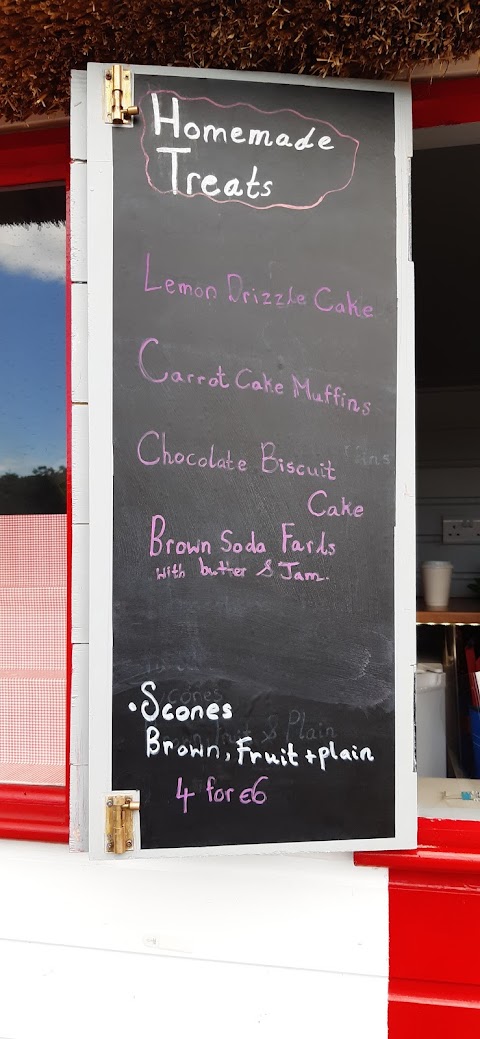 Homemade
Treats
Lemon Drizzle Cake
Carrot Cake Muffins
Chocolate Biscuit
Cake
Brown Soda Farls
with butter & Jam.
• Scones
Brown, Fruit + plain
4 for €6